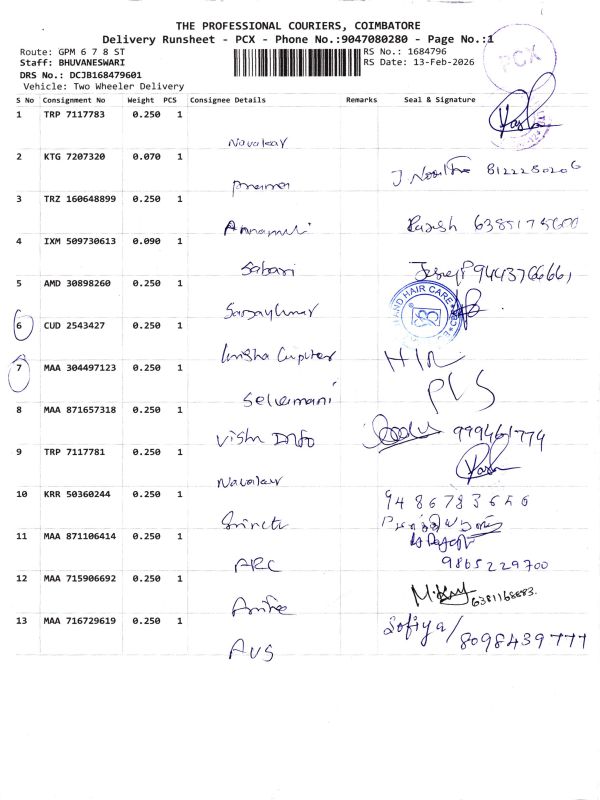 THE PROFESSIONAL COURIERS, COIMBATORE
Delivery Runsheet - PCX - Phone No.:9047080280 - Page No.:1
Route: GPM 6 7 8 ST
RS No.: 1684796
Staff: BHUVANESWARI
RS Date: 13-Feb-2026
DRS No.: DCJB168479601
Vehicle: Two Wheeler Delivery
PCX
S No Consignment No Weight PCS Consignee Details Remarks Seal & Signature
1 TRP 7117783 0.250 1
2 KTG 7207320 0.070 1
8122280206
3 TRZ 160648899 0.250 1
Rajesh
4 IXM 509730613 0.090 1
Sabari
5 AMD 30898260 0.250 1
HAND HAIR CARE
6 CUD 2543427 0.250 1
7 MAA 304497123 0.250 1
Selvamani
PLS
8 MAA 871657318 0.250 1
Vishn Info
9 TRP 7117781 0.250 1
10 KRR 50360244 0.250 1
9486783656
11 MAA 871106414 0.250 1
ARC
9865229700
12 MAA 715906692 0.250 1
6381168883.
13 MAA 716729619 0.250 1
Sofiya/
8098439777
AVS